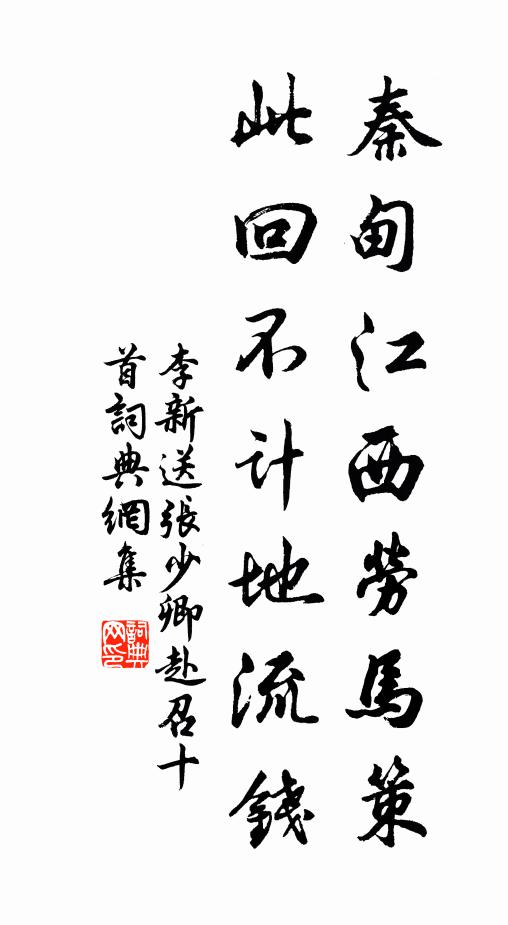 秦甸江西勞馬策
此回不计地流錢
李新送張少卿赴召十
首詞典網集
詞典
网印